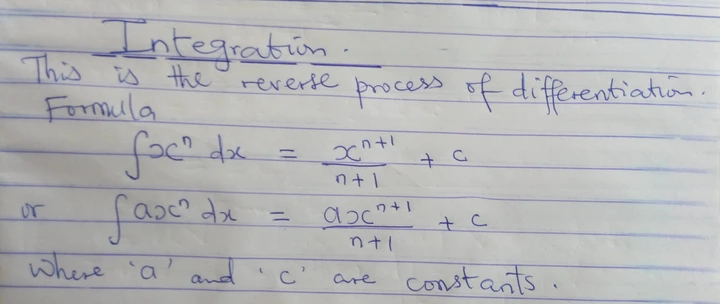 Integration.
This is the reverse process of differentiation.
Formula
∫xⁿ dx = xⁿ⁺¹/n+1 + c
or ∫axⁿ dx = axⁿ⁺¹/n+1 + c
where 'a' and 'c' are constants.